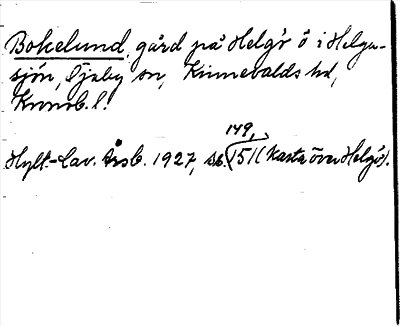 Bokelund, gård på Helgö ö i Helga-
sjön, Öjaby sn, Kinnevalds hd,
Kronob. l.
149,
Hylt.-Cav. Årsb. 1927, s. 151 (karta över Helgö).